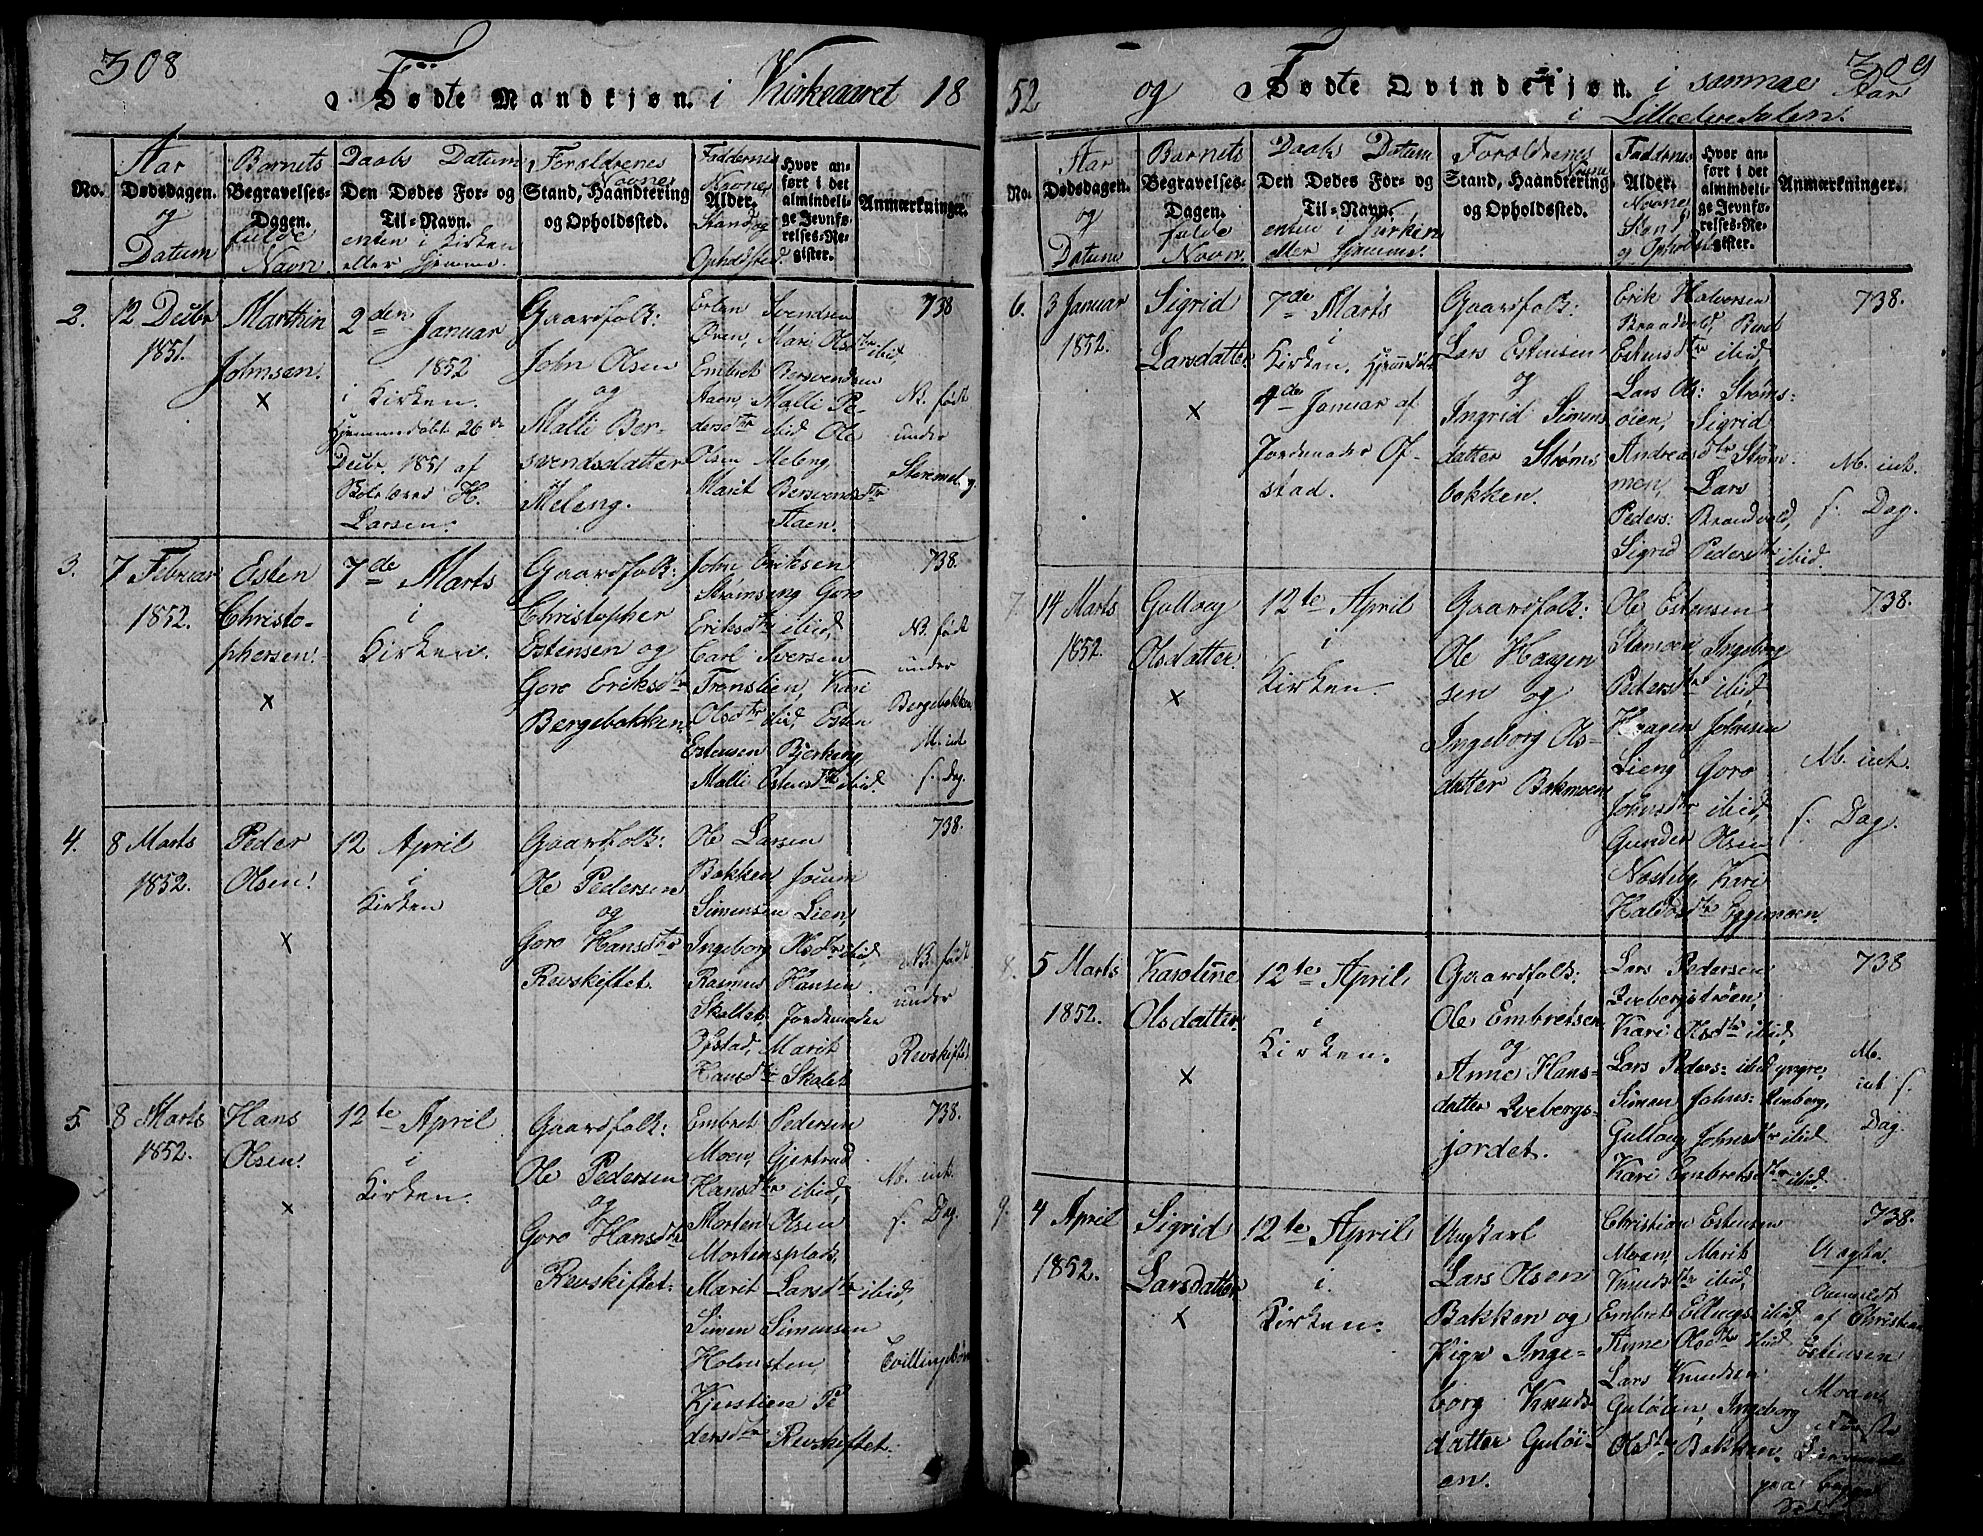 308
Fødte Mandkjøn. i Kirkeaaret 18
No.
Aar
Dødsdagen.
og
Datum
Barnets
Begravelses-
Dagen.
fulde
Navn
Daabs Datum
Den Dødes For- og
Til-Navn.
enten i Kirken
eller hjemme.
Forældrenes
Navne
Stand, Haandtering
og Opholdssted.
Faddernes
Navne
Alder.
Stand og
Opholdsted.
Hvor an-
ført i det
almindeli-
ge Jevnfø-
relses-Re-
gister.
Anmærkninger.
2.
12 Decbr
1851.
Marthin
Johnsen.
×
2den Januar
1852
i Kirken.
Hjemmedøbt 26de
Decbr. 1851 af
H.
Larsen.
Gaardfolk:
John Olsen
og
Malli Ber-
svendsdatter
Meleng.
Esten Svendsen
Øven, Mari Olsdtr ibid
Embret Bersvendsen
Aaen, Malli Pe-
dersdtr ibid Ole
Olsen Meleng,
Marit Bersvendsdtr
Aaen.
738
NB. født
under
Storemelg.
3.
7 Februar
1852.
Esten
Christo-
phersen.
×
7de Marts
i
Kirken.
Gaardfolk:
Christopher
Estensen og
Goro Eriksdtr
Bergebakken.
John Eriksen
Strømseng Goro
Eriksdtr ibid,
Carl Iversen
Trønslien, Kari
Olsdtr ibid, Esten
Estensen Bjerkeng
Malli Estensdtr ibid.
738.
NB. født
under
Bergebakken
M. int.
f. Dag.
4.
8 Marts
1852.
Peder
Olsen.
×
12 April
i
Kirken
Gaardfolk:
Ole Pedersen
og
Goro Hansdtr
Revskiftet.
Ole Larsen
Bakken Joeum
Simensen Lien,
Ingeborg Olsdtr ibid,
Rasmus Hansen
Skallet, Jordemoder
Ofstad, Marit
Hansdtr Skalet
738.
NB. født
under
Revskiftet
5.
8 Marts
1852.
Hans
Olsen.
×
12te April
i
Kirken.
Gaardfolk:
Ole Pedersen
og
Goro Hansdtr
Revskiftet.
Embret Pedersen
Moen, Gjertrud
Hansdtr ibid,
Morten Olsen
Mortensplads,
Marit Larsdtr ibid,
Simen Simensen
Holmsten,
Kjerstien Pe
dersdtr Revskiftet.
738.
M. int.
f. Dag.
Tvillingebørn
52
og Fødte Qvindekjøn. i samme Aar
309
i Lilleelvedalen.
No.
Aar
Dødsdagen.
og
Datum
Barnets
Begravelses-
Dagen.
fulde
Navn.
Daabs Datum
Den Dødes For- og
Til-Navn.
enten i Kirken
eller hjemme.
Forældrenes
Navne
Stand, Haandtering
og Opholdssted.
Faddernes
Alder.
Navne
Stand
og Opholdst
Hvor an-
ført i det
almindeli-
ge Jevnfø-
relses-Re-
gister.
Anmærkninger.
6.
3 Januar
1852.
Sigrid
Larsdatter
×
7de Marts
i
Kirken. Hjemdøbt
4de Januar af
Jordemoder Of-
stad.
Gaardfolk:
Lars Estensen
og
Ingrid Simens
datter Strøms
bakken.
Erik Halvorsen
Brandvold, Berit
Estensdtr ibid,
Lars Ols: Strøms-
øien, Sigrid
Andreasdtr Strøm-
men, Lars
Peders: Brandvold,
Sigrid Pedersdtr ibid.
738.
M. int.
f. Dag.
7.
14 Marts
1852.
Gulloug
Olsdatter.
×
12te April
i
Kirken.
Gaardfolk:
Ole Haagen
sen og
Ingeborg Ols-
datter Bakmoen
Ole Estensen
Stamoen Ingeborg
Pedersdtr ibid
Haagen Johnsen
Lieng Goro
Johnsdtr ibid,
Gunder Olsen
Nosteby Kari
Haldosdtr Eggemoen.
738.
M. int.
f. Dag.
8.
5 Marts
1852.
Karoline
Olsdatter.
×
12te April
i
Kirken.
Gaardfolk:
Ole Embretsen
og
Anne Hans-
datter Qvebergs-
jordet.
Lars Pedersen
Qvebergstrøen,
Kari Olsdtr ibid,
Lars Peders: ibid yngre,
Simen Johns: Renberg,
Gulloug Johnsdtr ibid
Kari Embretsdtr ibid.
738
M.
int f.
Dag.
9.
4 April
1852.
Sigrid
Larsdatter
×
12te April
i
Kirken.
Ungkarl
Lars Olsen
Bakken og
Pige Inge-
borg Knuds-
datter Guløi-
en.
Christian Estensen
Moan, Marit
Knudsdtr ibid,
Embret Ellings: ibid,
Anne Olsdtr ibid
Lars Knudsen
Guløien, Ingeborg
Olsdtr Bakken.
738.
Uægte.
Anmeldt
af Christian
Estensen
Moan.
Første
paa begges